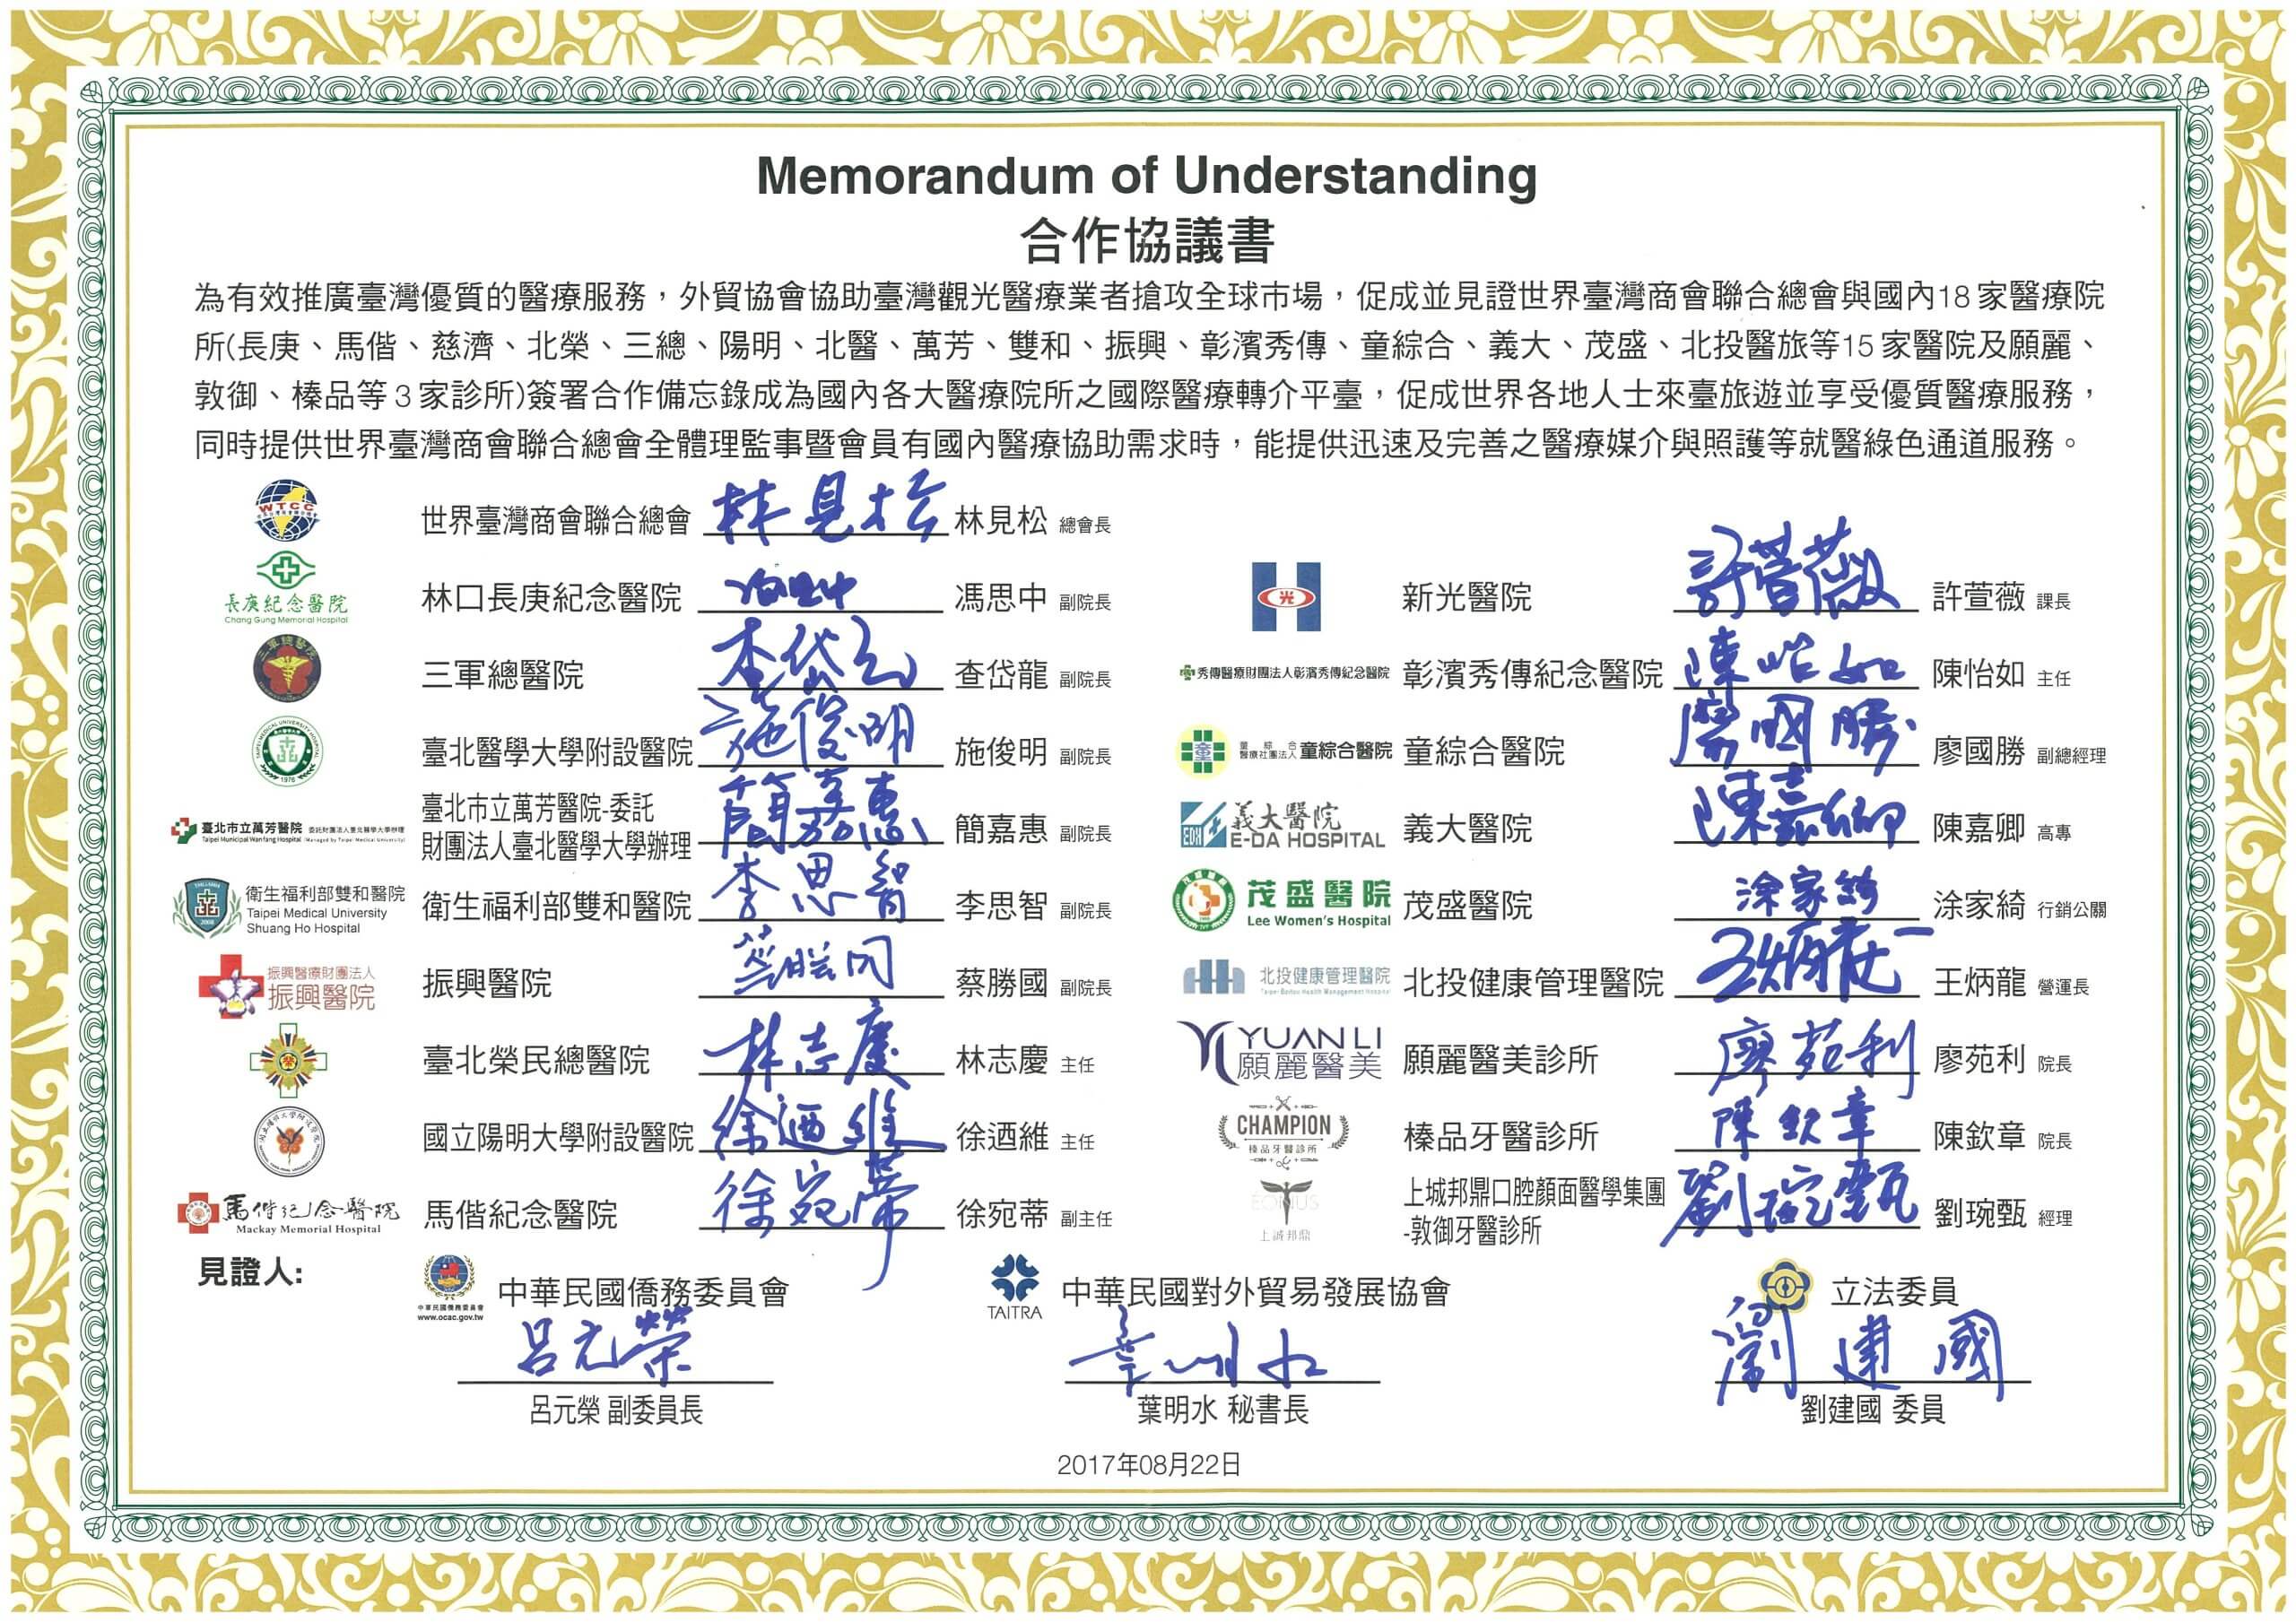 Memorandum of Understanding
合作協議書
為有效推廣臺灣優質的醫療服務，外貿協會協助臺灣觀光醫療業者搶攻全球市場，促成並見證世界臺灣商會聯合總會與國內18家醫療院
所(長庚、馬偕、慈濟、北榮、三總、陽明、北醫、萬芳、雙和、振興、彰濱秀傳、童綜合、義大、茂盛、北投醫旅等15家醫院及願麗、
敦御、榛品等3家診所)簽署合作備忘錄成為國內各大醫療院所之國際醫療轉介平臺，促成世界各地人士來臺旅遊並享受優質醫療服務，
同時提供世界臺灣商會聯合總會全體理監事暨會員有國內醫療協助需求時，能提供迅速及完善之醫療媒介與照護等就醫綠色通道服務。
WTCC 世界臺灣商會聯合總會 林見松 林見松 總會長
長庚紀念醫院
Chang Gung Memorial Hospital
林口長庚紀念醫院 馮思中 馮思中 副院長
三軍總醫院
三軍總醫院 查岱龍 查岱龍 副院長
TAIPEI MEDICAL UNIVERSITY HOSPITAL 1976
臺北醫學大學附設醫院 施俊明 施俊明 副院長
臺北市立萬芳醫院 委託財團法人臺北醫學大學辦理
Taipei Municipal Wanfang Hospital (Managed by Taipei Medical University)
臺北市立萬芳醫院-委託
財團法人臺北醫學大學辦理 簡嘉惠 簡嘉惠 副院長
衛生福利部雙和醫院
Taipei Medical University
Shuang Ho Hospital
衛生福利部雙和醫院 李思智 李思智 副院長
振興醫療財團法人
振興醫院
振興醫院 蔡勝國 蔡勝國 副院長
臺北榮民總醫院 林志慶 林志慶 主任
國立陽明大學附設醫院 徐迺維 徐迺維 主任
馬偕紀念醫院
Mackay Memorial Hospital
馬偕紀念醫院 徐宛蒂 徐宛蒂 副主任
光 新光醫院 許萱薇 許萱薇 課長
秀傳醫療財團法人彰濱秀傳紀念醫院 彰濱秀傳紀念醫院 陳怡如 陳怡如 主任
童 童綜合醫療社團法人 童綜合醫院 童綜合醫院 廖國勝 廖國勝 副總經理
EDH 義大醫院
E-DA HOSPITAL
義大醫院 陳嘉卿 陳嘉卿 高專
茂盛醫院
Lee Women's Hospital
茂盛醫院 涂家綺 涂家綺 行銷公關
北投健康管理醫院
北投健康管理醫院 王炳龍 王炳龍 營運長
YUAN LI
願麗醫美
願麗醫美診所 廖苑利 廖苑利 院長
CHAMPION
榛品牙醫診所
榛品牙醫診所 陳欽章 陳欽章 院長
ÉONIUS
上誠邦鼎
上城邦鼎口腔顏面醫學集團
-敦御牙醫診所 劉琬甄 劉琬甄 經理
見證人:
中華民國僑務委員會
www.ocac.gov.tw
中華民國僑務委員會
呂元榮
呂元榮 副委員長
TAITRA
中華民國對外貿易發展協會
葉明水
葉明水 秘書長
立法委員
劉建國
劉建國 委員
2017年08月22日